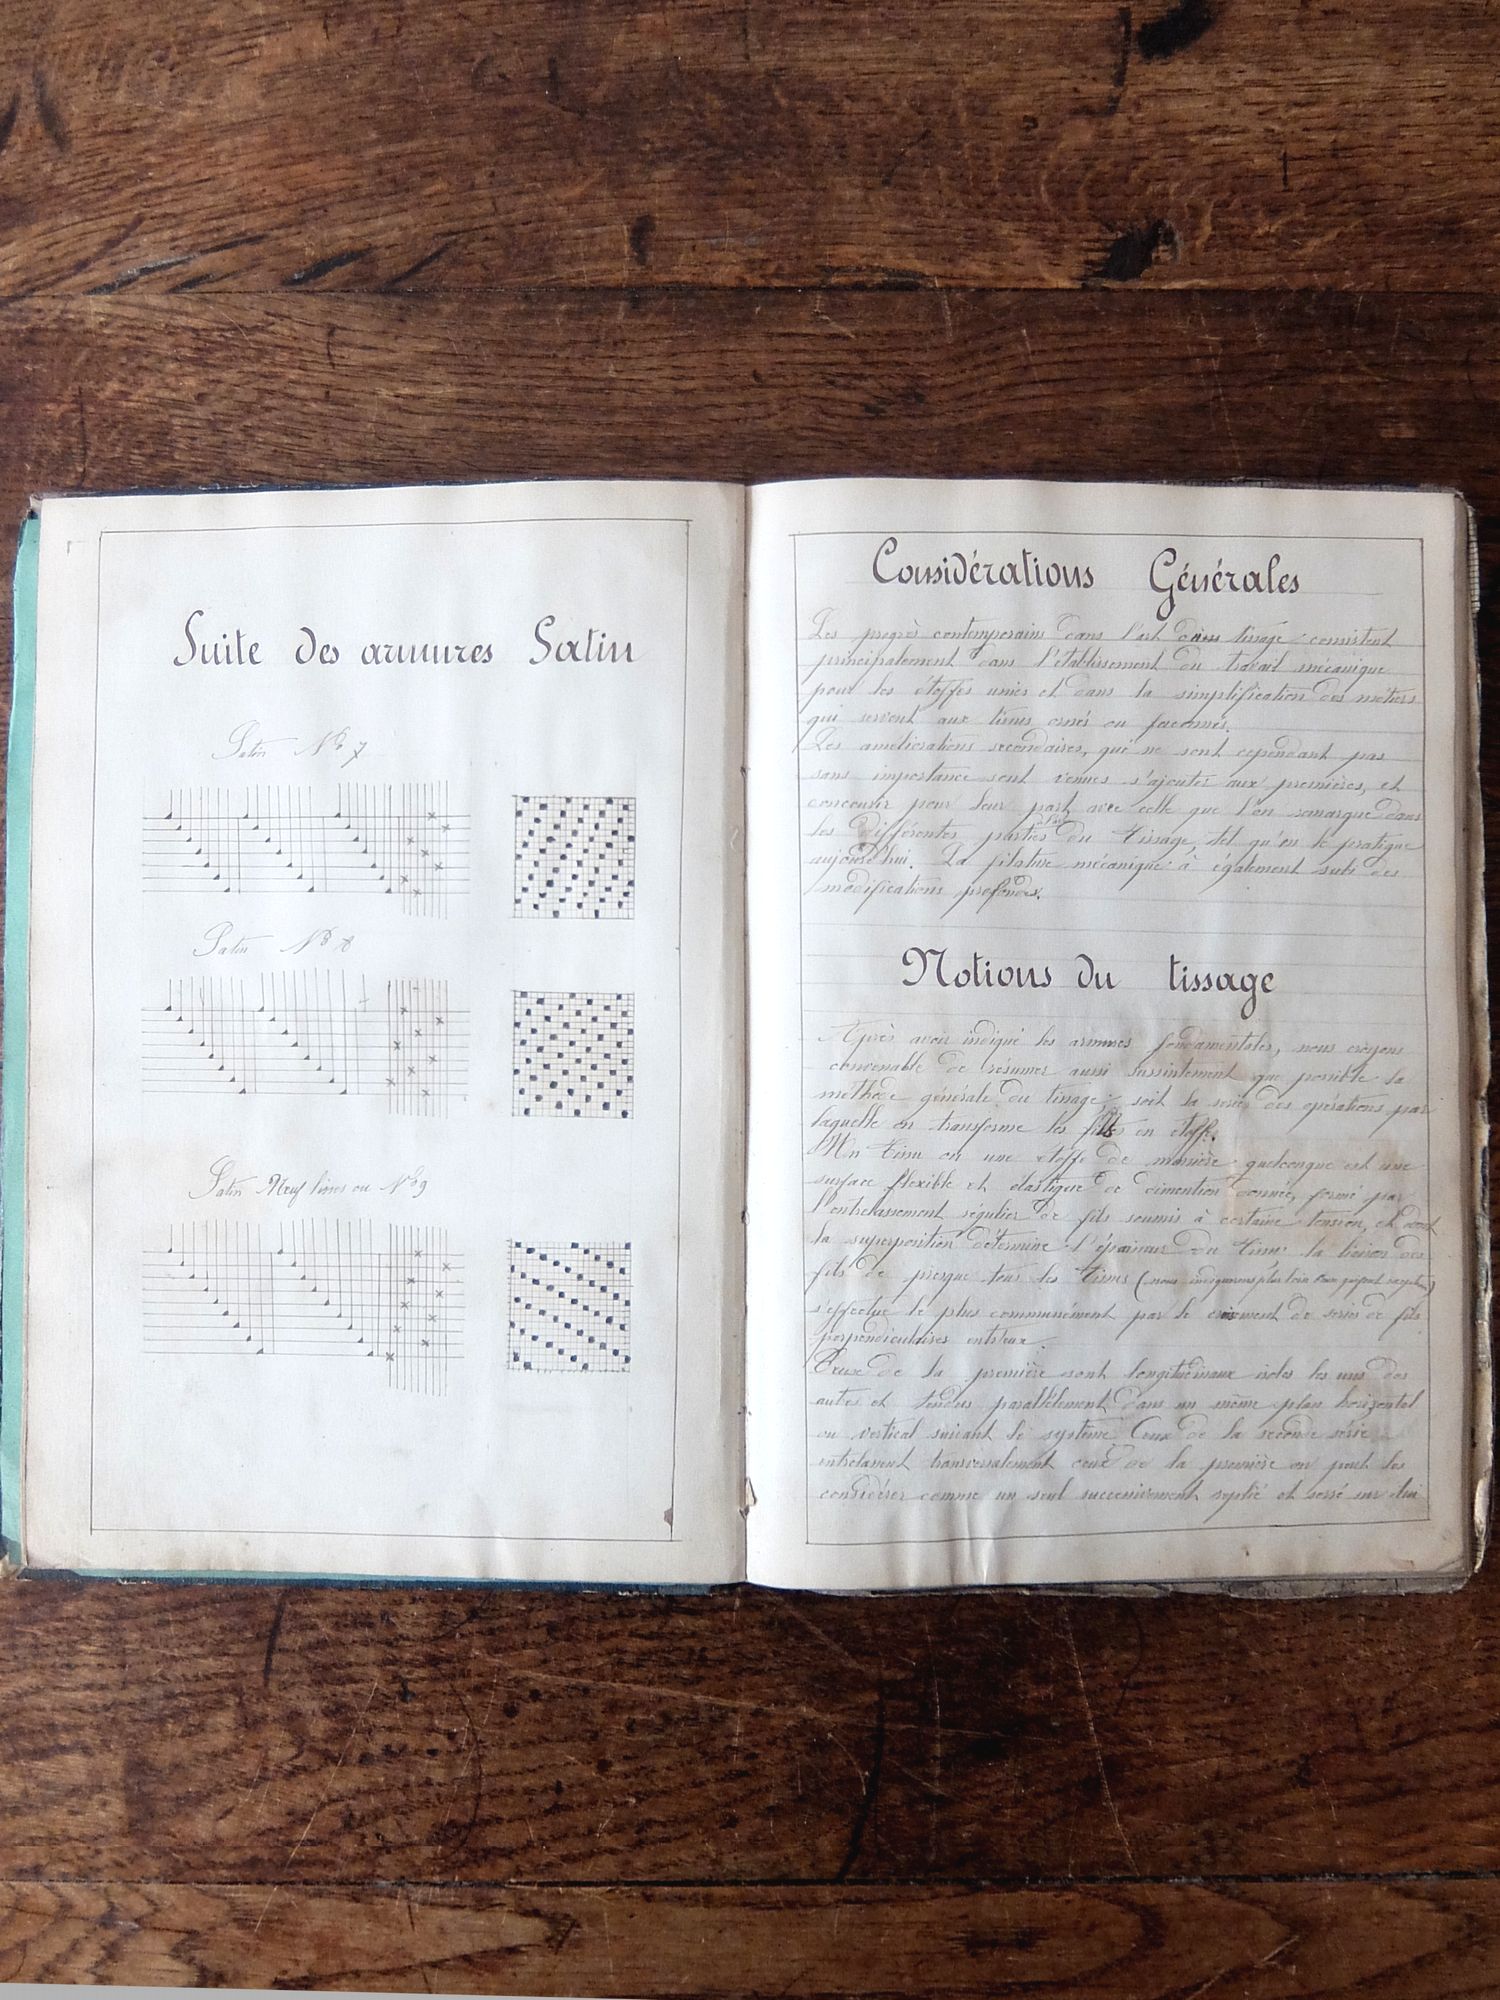 Suite des armures Satin
Satin No 7
Satin No 8
Satin Neuf lisses ou No 9
Considérations Générales
Les progrès contemporains dans l'art dans tissage consistent
principalement dans l'établissement du travail mécanique
pour les étoffes unies et dans la simplification des métiers
qui servent aux tissus ornés ou façonnés.
Les améliorations secondaires, qui ne sont cependant pas
sans importance sont venues s'ajouter aux premières, et
concourir pour leur part avec celle que l'on remarque dans
les différentes parties du tissage, tel qu'on le pratique
aujourd'hui. La filature mécanique à également subi des
modifications profondes.
Notions du tissage
Après avoir indiqué les armures fondamentales, nous croyons
convenable de résumer aussi sussintement que possible la
méthode générale du tissage; soit la série des opérations par
laquelle on transforme les fils en étoffe.
Un tissu ou une étoffe de manière quelconque est une
surface flexible et élastique de dimention donnée, formé par
l'entrelassement régulier de fils soumis à certaine tension, et dont
la superposition détermine l'épaisseur du tissu la liaison des
fils de presque tous les tissus (nous indiquerons plus loin
s'effectue le plus communément par le croisement de séries de fils
perpendiculaires entr'eux.
Ceux de la première sont longitudinaux isolés les uns des
autres et tendus parallèlement dans un même plan horizontal
ou vertical suivant le système Ceux de la seconde série
entrelassent transversalement ceux de la première on peut les
considérer comme un seul successivement replié et serré sur lui